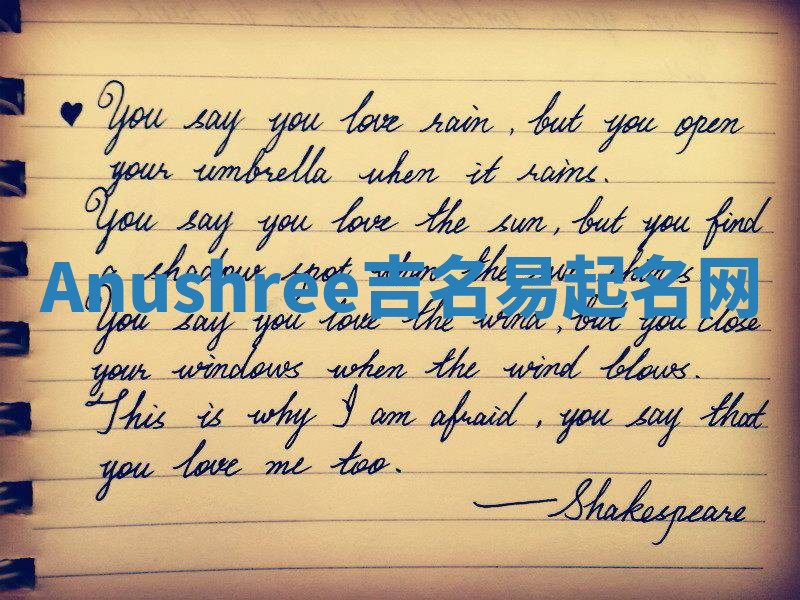 ♥ You say you love rain, but you open
your umbrella when it rains.
You say you love the sun, but you find
a shadow spot when the sun shines
Anushree吉名易起名网
You say you love the wind, but you close
your windows when the wind blows.
This is why I am afraid, you say that
you love me too.
—Shakespeare